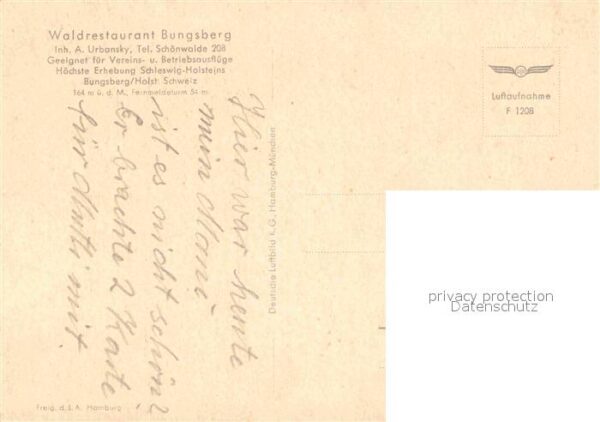 Waldrestaurant Bungsberg
Inh. A. Urbansky, Tel. Schönwalde 208
Geeignet für Vereins- u. Betriebsausflüge
Höchste Erhebung Schleswig-Holsteins
Bungsberg/Holst. Schweiz
164 m ü. d. M., Fernmeldeturm 54 m
Luftaufnahme
F 1208
Hier war heute
mein Mani
ist es nicht schön?
Er brachte 2 Karte
für Mutti mit
Deutsche Luftbild K.G. Hamburg-München
privacy protection
Datenschutz
Freig. d. L.A. Hamburg